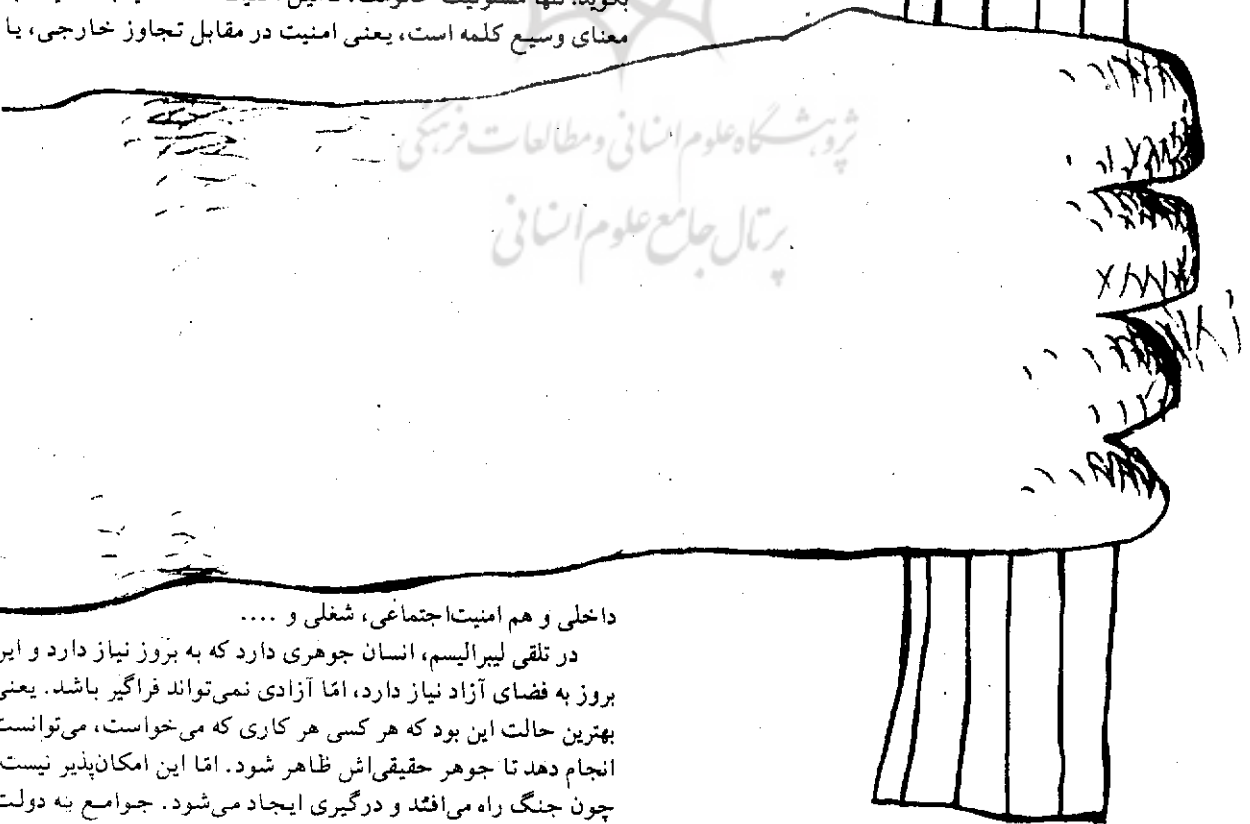 معنای وسیع کلمه است، یعنی امنیت در مقابل تجاوز خارجی، یا
پژوهشگاه علوم انسانی و مطالعات فرهنگی
پرتال جامع علوم انسانی
داخلی و هم امنیت‌اجتماعی، شغلی و ....
در تلقی لیبرالیسم، انسان جوهری دارد که به بروز نیاز دارد و این
بروز به فضای آزاد نیاز دارد، امّا آزادی نمی‌تواند فراگیر باشد. یعنی
بهترین حالت این بود که هر کسی هر کاری که می‌خواست، می‌توانست
انجام دهد تا جوهر حقیقی‌اش ظاهر شود. امّا این امکان‌پذیر نیست
چون جنگ راه می‌افتد و درگیری ایجاد می‌شود. جوامع به دولت